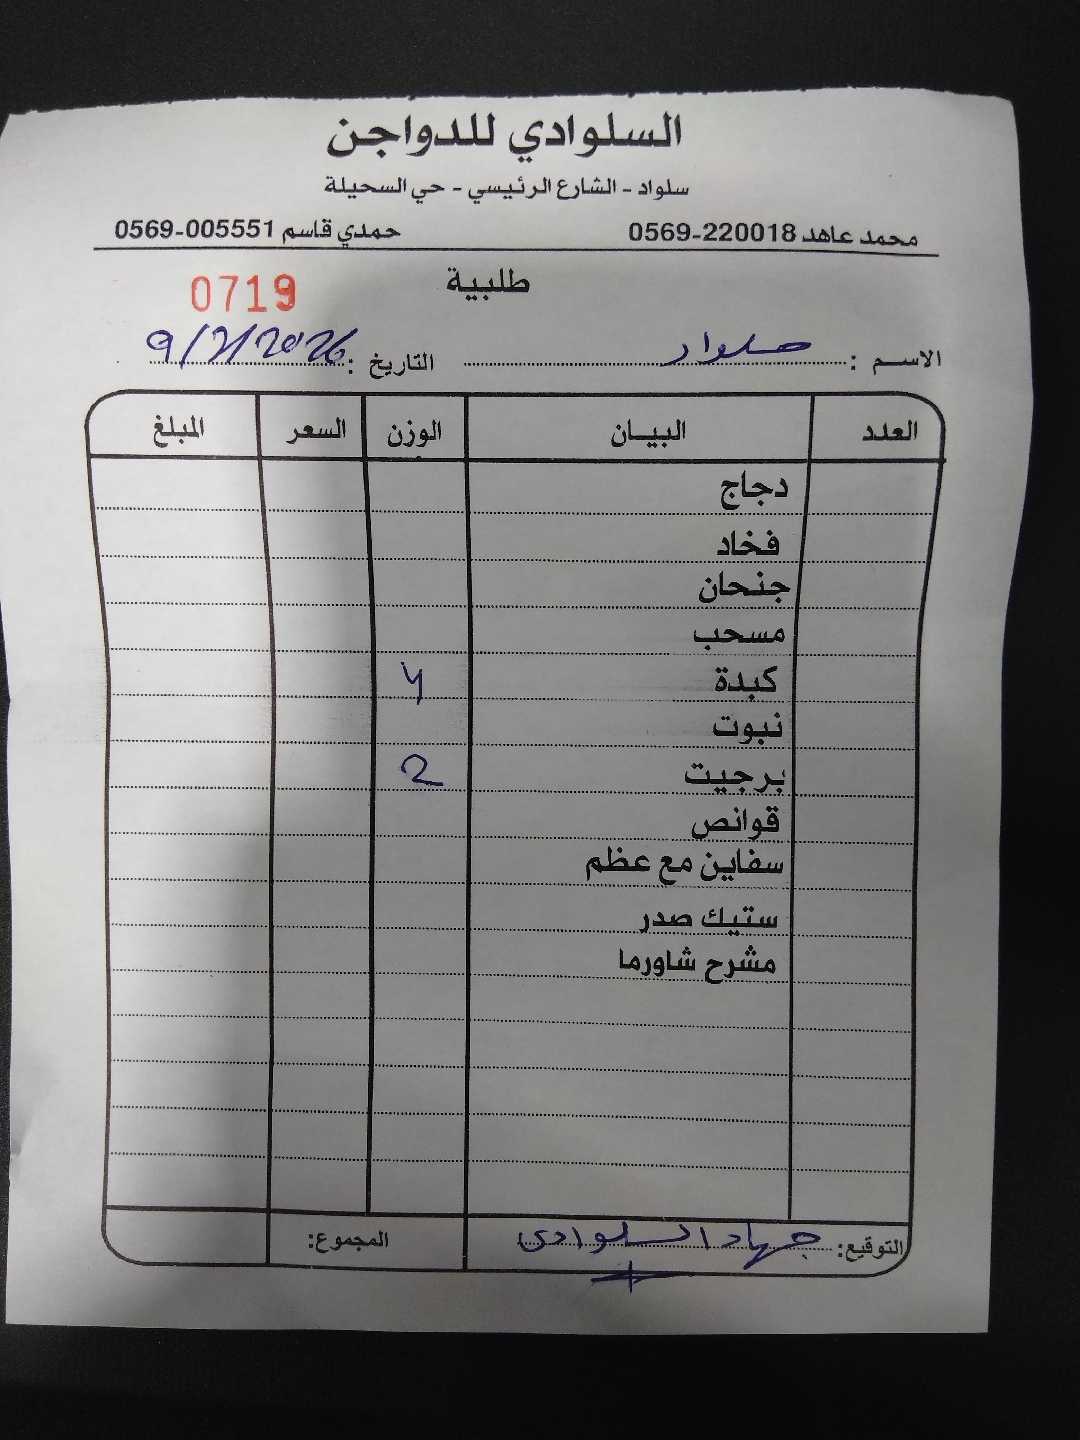 السلوادي للدواجن
سلواد - الشارع الرئيسي - حي السحيلة
محمد عاهد 0569-220018 حمدي قاسم 0569-005551
طلبية 0719
الاسم : سلواد التاريخ : 9/2/2026
العدد البيـــان الوزن السعر المبلغ
دجاج
فخاد
جنحان
مسحب
كبدة 4
نبوت
برجيت 2
قوانص
سفاين مع عظم
ستيك صدر
مشرح شاورما
التوقيع: جهاد السلوادي المجموع: